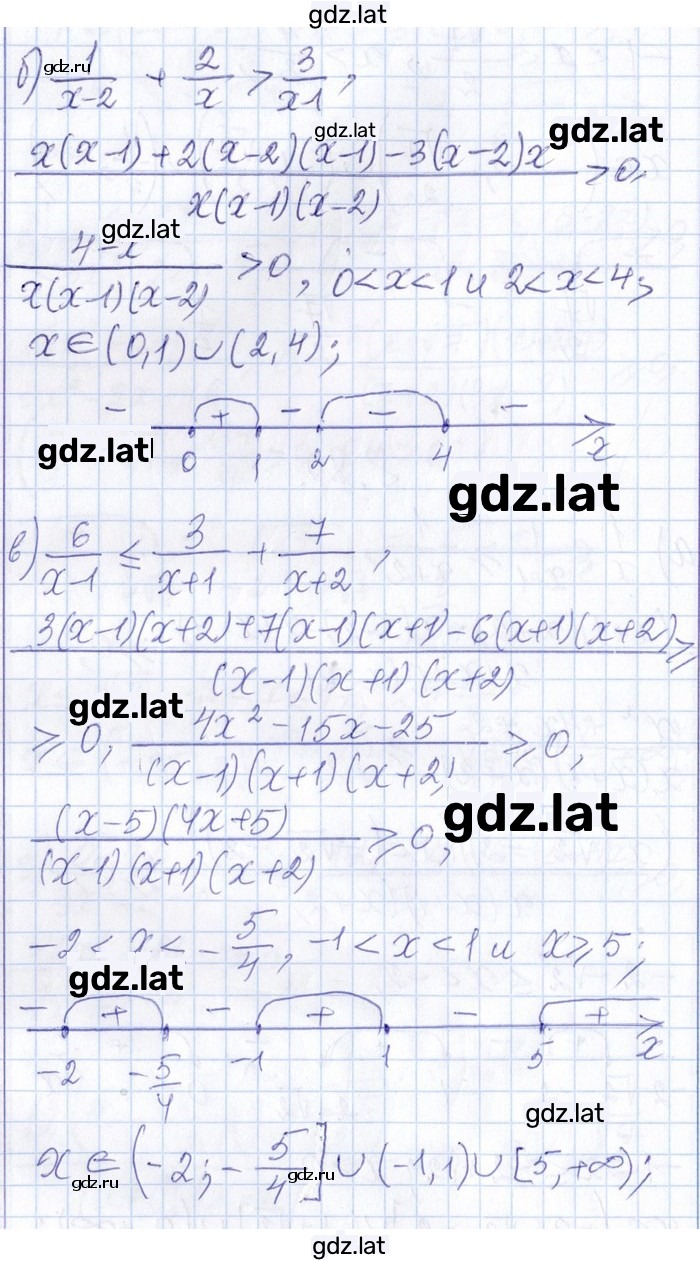 gdz.lat
б) 1/(x-2) + 2/x > 3/(x1),
gdz.ru
gdz.lat
gdz.lat
(x(x-1)+2(x-2)(x-1)-3(x-2)x)/(x(x-1)(x-2)) > 0,
gdz.lat
(4-x)/(x(x-1)(x-2)) > 0, 0<x<1 и 2<x<4;
x∈(0,1)∪(2,4);
- + - - -
gdz.lat
0 1 2 4 x
gdz.lat
в) 6/(x-1) ≤ 3/(x+1) + 7/(x+2),
(3(x-1)(x+2)+7(x-1)(x+1)-6(x+1)(x+2))/((x-1)(x+1)(x+2)) ≥
gdz.lat
≥ 0, (4x²-15x-25)/((x-1)(x+1)(x+2)) ≥ 0,
gdz.lat
((x-5)(4x+5))/((x-1)(x+1)(x+2)) ≥ 0,
-2<x<-5/4, -1<x<1 и x≥5;
gdz.lat
- + - + - +
-2 -5/4 -1 1 5 x
gdz.lat
x∈(-2;-5/4]∪(-1,1)∪[5,+∞);
gdz.ru
gdz.ru
gdz.lat